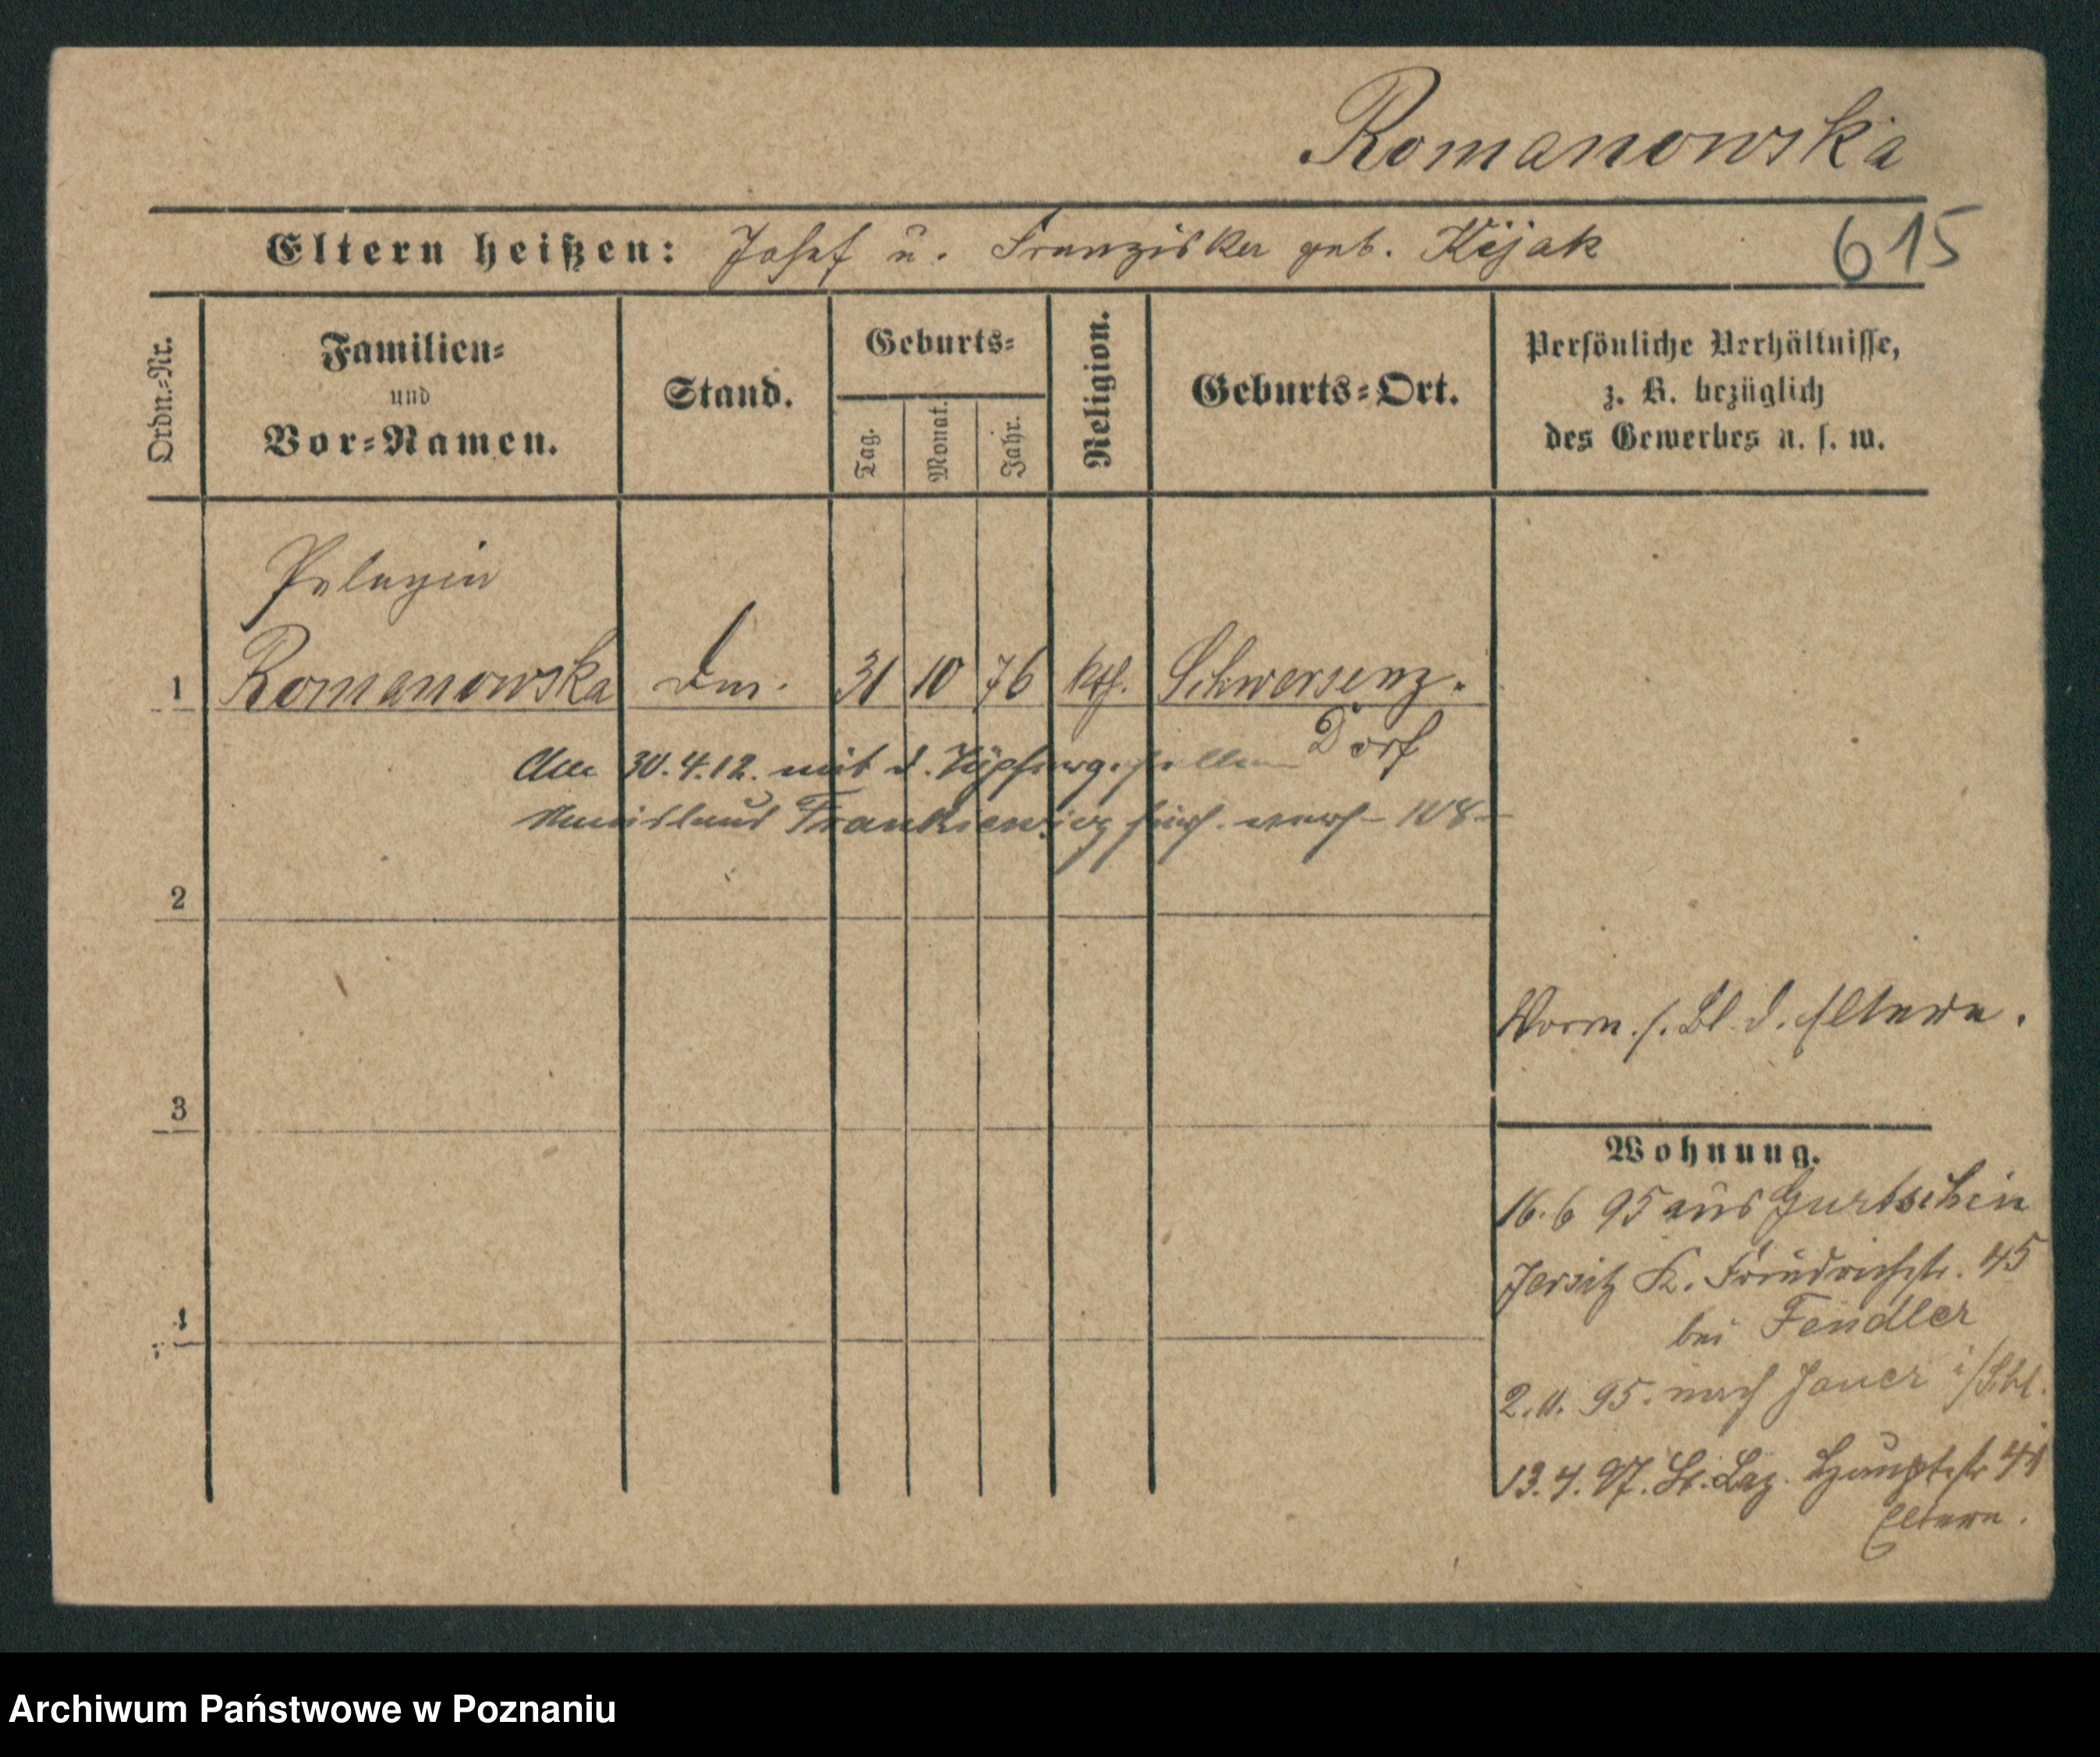 Romanowska
Eltern heißen: Josef u. Franziska geb. Kijak
615
Ordn.-Nr.
Familien-
und
Vor-Namen.
Stand.
Geburts-
Tag.
Monat.
Jahr.
Religion.
Geburts-Ort.
Persönliche Verhältnisse,
z. B. bezüglich
des Gewerbes u. s. w.
Pelagia
1 Romanowska 31 10 76 kth. Schwersenz.
Dorf
30.4.12. mit d. Töpfergesellen
Frankiewicz
2
3
Vorm. s. Bl. d. Eltern.
Wohnung.
16.6 95 aus Gurtschin
Jersitz K. Friedrichstr. 45
bei Fendler
95. nach Jauer i/Schl.
13.4.97. St. Laz. Hauptstr
Eltern.
Archiwum Państwowe w Poznaniu